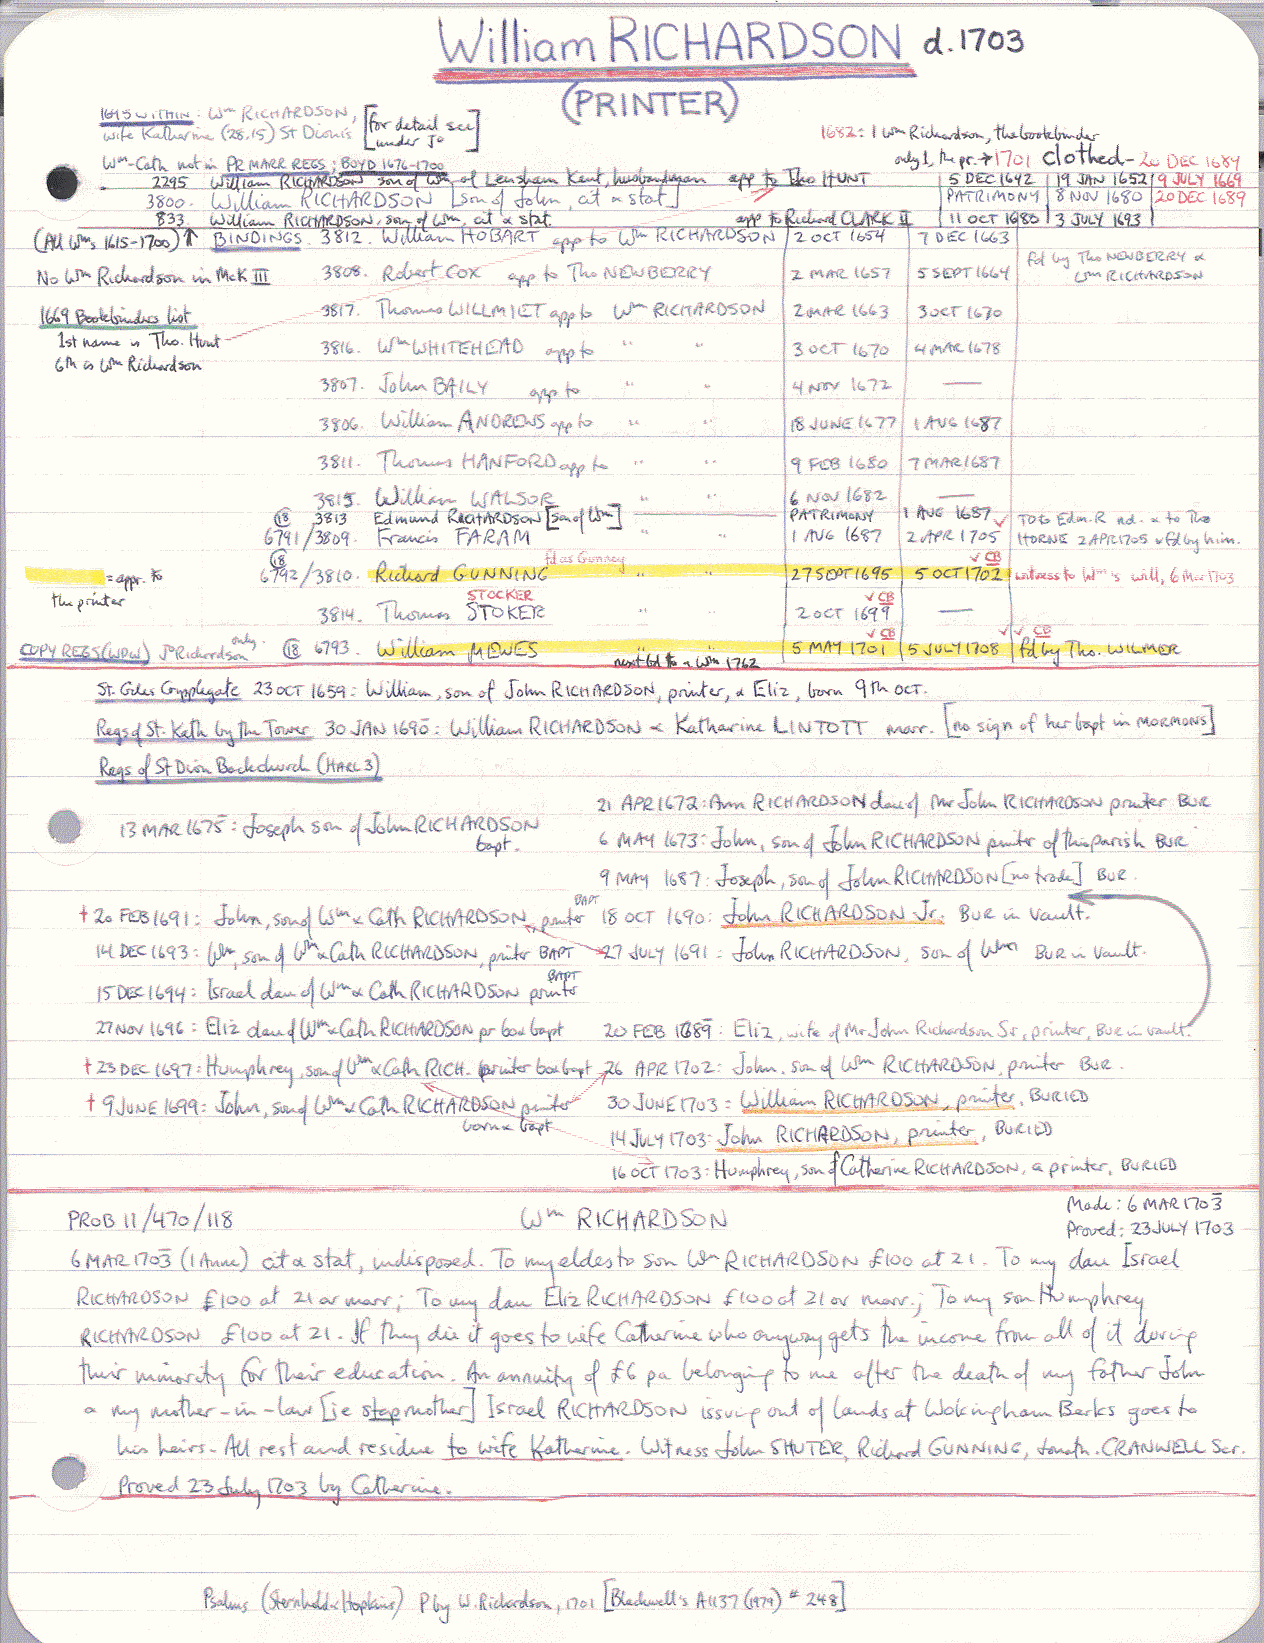 William RICHARDSON d.1703
(PRINTER)
1695 WITHIN: Wm RICHARDSON, [for detail see
wife Katharine (28.15) St Dionis under Jo]
1682: 1 Wm Richardson, the bookebinder
Wm-Cath not in PR MARR REGS; BOYD 1676-1700
only 1, the pr. → 1701 clothed - 20 DEC 1689
2295 William RICHARDSON son of Wm of Lensham Kent, husbandman app to Tho HUNT 5 DEC 1642 19 JAN 1652 9 JULY 1669
3800. William RICHARDSON [son of John, cit & stat] PATRIMONY 8 NOV 1680 20 DEC 1689
833. William RICHARDSON, son of Wm, cit & stat. app to Richard CLARK II 11 OCT 1680 3 JULY 1693
(All Wms 1615-1700) ↑ BINDINGS. 3812. William HOBART app to Wm RICHARDSON 2 OCT 1654 7 DEC 1663
No Wm Richardson in McK III 3808. Robert COX app to Tho NEWBERRY 2 MAR 1657 5 SEPT 1664 fd by Tho NEWBERRY & Wm RICHARDSON
1669 Bookebinders list 3817. Thomas WILLMIET app to Wm RICHARDSON 2 MAR 1663 3 OCT 1670
1st name is Tho. Hunt 3816. Wm WHITEHEAD app to " " 3 OCT 1670 4 MAR 1678
6th is Wm Richardson
3807. John BAILY app to " " 4 NOV 1672 —
3806. William ANDREWS app to " " 18 JUNE 1677 1 AUG 1687
3811. Thomas HANFORD app to " " 9 FEB 1680 7 MAR 1687
3815. William WALSOR " " 6 NOV 1682 —
(18) 3813 Edmund RICHARDSON [son of Wm] — PATRIMONY 1 AUG 1687 ✓ TO to Edm. R nd. & to Tho
6791/3809. Francis FARAM " 1 AUG 1687 2 APR 1705 HORNE 2 APR 1705 & fd by him.
(18) fd as Gunney ✓ CB
= appr. to 6792/3810. Richard GUNNING " " 27 SEPT 1695 5 OCT 1702 witness to Wm's will, 6 Mar 1703
the printer STOCKER ✓ CB
3814. Thomas STOKER " " 2 OCT 1699 —
✓ CB ✓ ✓ CB
COPY REGS (WDW) Jo Richardson only. (18) 6793. William MEWES " " 5 MAY 1701 5 JULY 1708 fd by Tho. WILMER
next bd to a Wm 1762
St. Giles Cripplegate 23 OCT 1659: William, son of John RICHARDSON, printer, & Eliz, born 9th OCT.
Regs of St. Kath by the Tower 30 JAN 1690: William RICHARDSON & Katharine LINTOTT marr. [no sign of her bapt in MORMONS]
Regs of St Dion Backchurch (HARL 3)
21 APR 1672: Ann RICHARDSON dau of Mr John RICHARDSON printer BUR
13 MAR 1675: Joseph son of John RICHARDSON bapt.
6 MAY 1673: John, son of John RICHARDSON printer of this parish BUR
9 MAY 1687: Joseph, son of John RICHARDSON [no trade] BUR.
† 20 FEB 1691: John, son of Wm & Cath RICHARDSON, printer BAPT 18 OCT 1690: John RICHARDSON Jr. BUR in vault.
14 DEC 1693: Wm, son of Wm & Cath RICHARDSON, printer BAPT 27 JULY 1691: John RICHARDSON, son of Wm BUR in vault.
15 DEC 1694: Israel dau of Wm & Cath RICHARDSON printer BAPT
27 NOV 1696: Eliz dau of Wm & Cath RICHARDSON pr b & bapt 20 FEB 1689: Eliz, wife of Mr John Richardson Sr, printer, BUR in vault.
† 23 DEC 1697: Humphrey, son of Wm & Cath RICH. printer b & bapt 26 APR 1702: John, son of Wm RICHARDSON, printer BUR.
† 9 JUNE 1699: John, son of Wm & Cath RICHARDSON printer born & bapt 30 JUNE 1703: William RICHARDSON, printer, BURIED
14 JULY 1703: John RICHARDSON, printer, BURIED
16 OCT 1703: Humphrey, son of Catherine RICHARDSON, a printer, BURIED
PROB 11/470/118 Wm RICHARDSON Made: 6 MAR 1703
Proved: 23 JULY 1703
6 MAR 1703 (1 Anne) cit & stat, indisposed. To my eldest son Wm RICHARDSON £100 at 21. To my dau Israel
RICHARDSON £100 at 21 or marr; To my dau Eliz RICHARDSON £100 at 21 or marr.; To my son Humphrey
RICHARDSON £100 at 21. If they die it goes to wife Catherine who anyway gets the income from all of it during
their minority for their education. An annuity of £6 pa belonging to me after the death of my father John
& my mother-in-law [ie stepmother] Israel RICHARDSON issuing out of lands at Wokingham Berks goes to
his heirs. All rest and residue to wife Katherine. Witness John SHUTER, Richard GUNNING, Jonath. CRANWELL Scr.
Proved 23 July 1703 by Catherine.
Psalms (Sternhold & Hopkins) P by W. Richardson, 1701 [Blackwell's A1137 (1979) # 248]